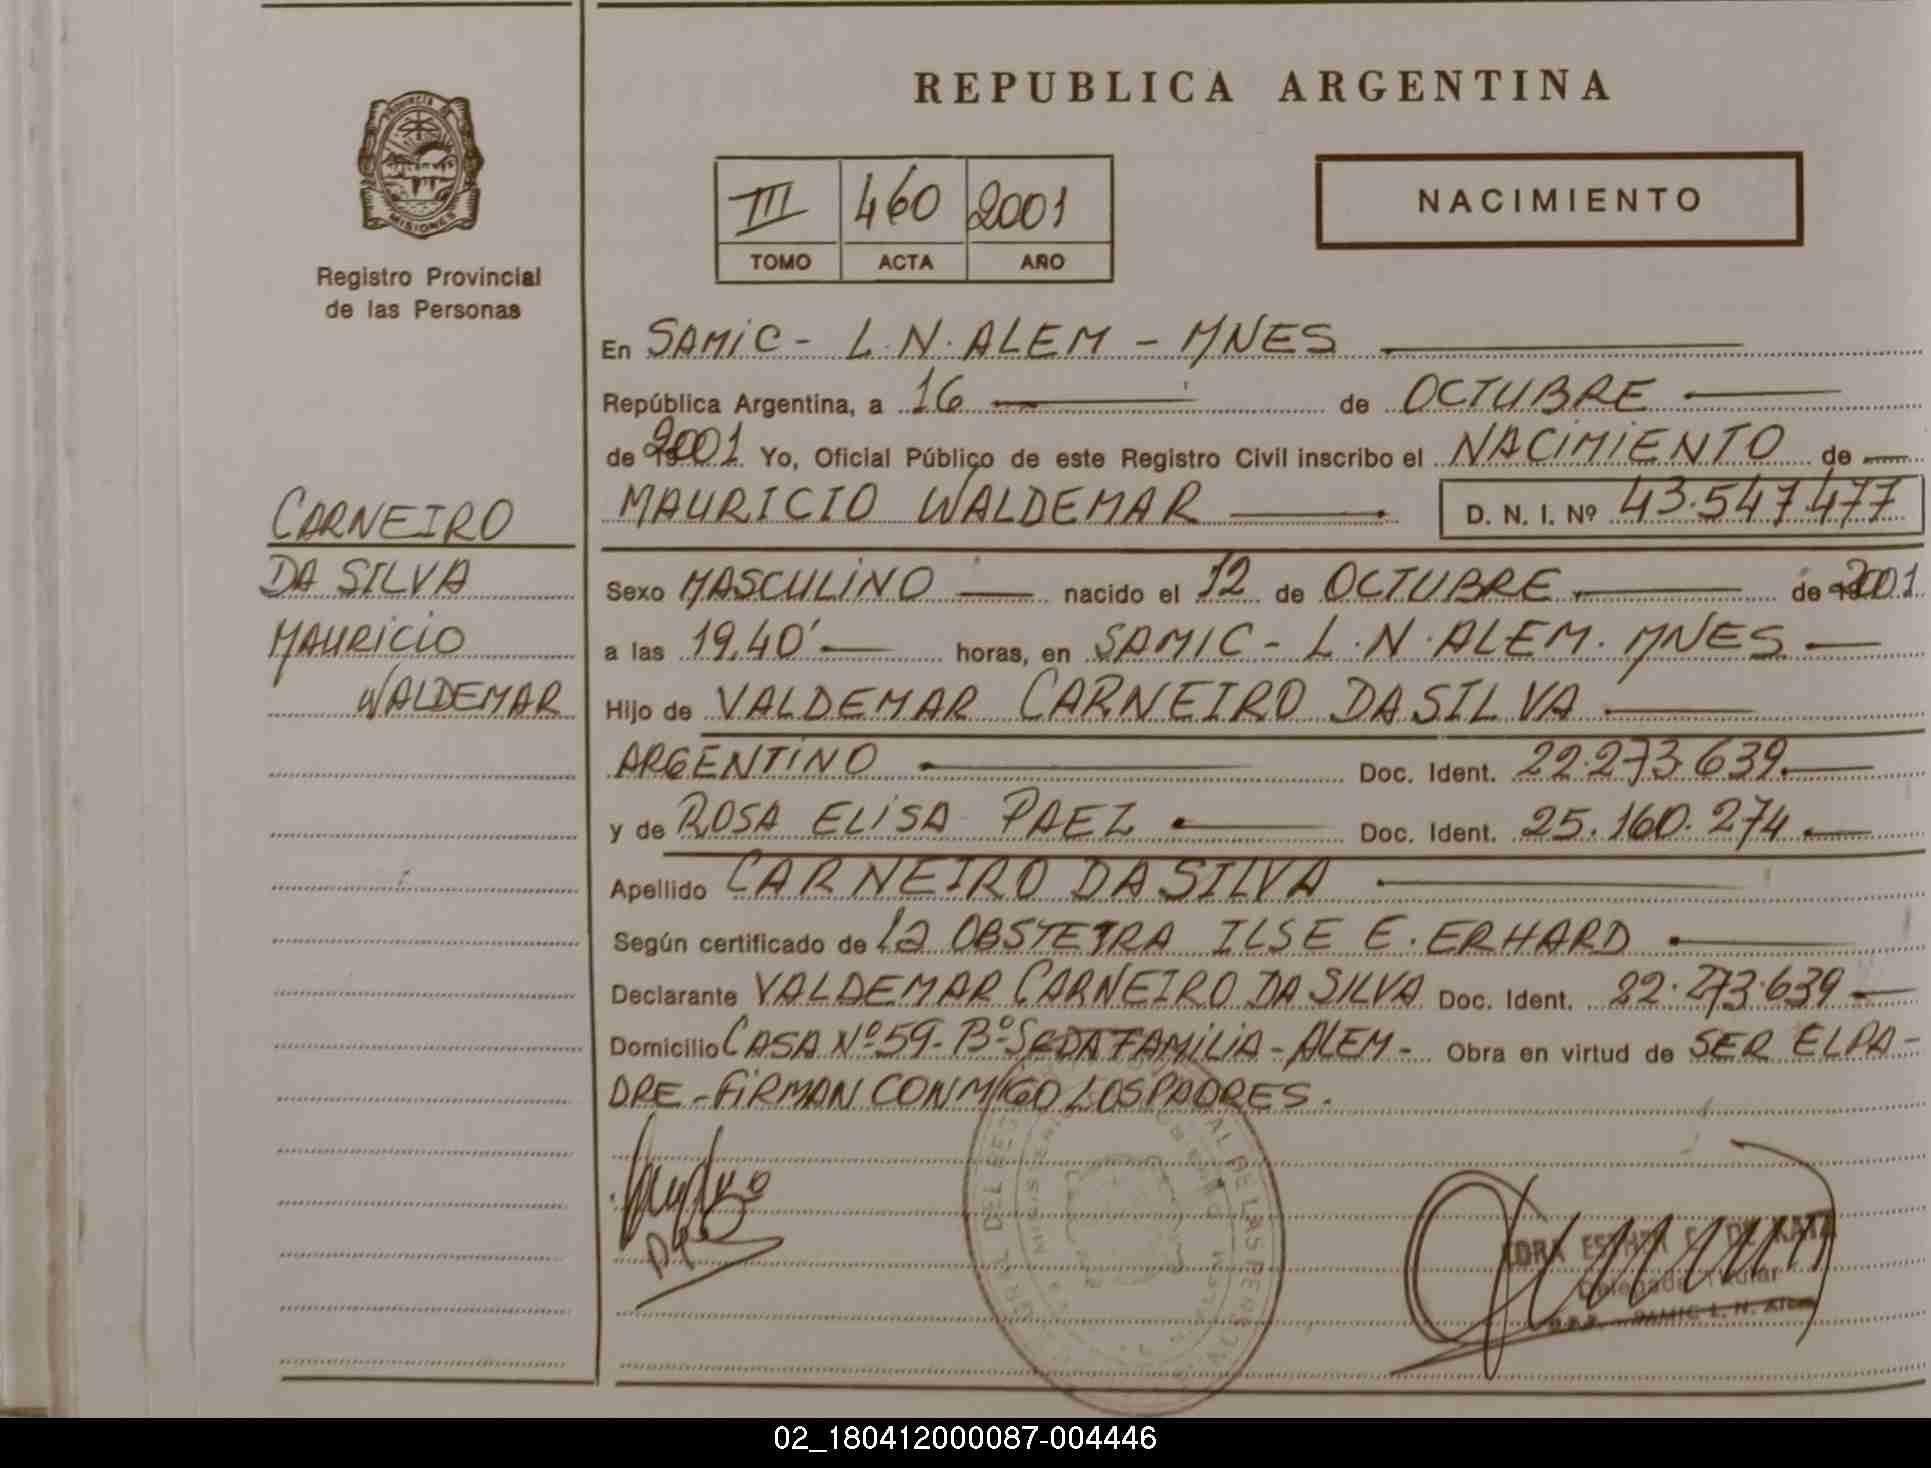 REPUBLICA ARGENTINA
PROVINCIA DE
MISIONES
Registro Provincial
de las Personas
III 460 2001
TOMO ACTA AÑO
NACIMIENTO
CARNEIRO
DA SILVA
MAURICIO
WALDEMAR
En SAMIC - L.N. ALEM - MNES
República Argentina, a 16 de OCTUBRE
de 2001 Yo, Oficial Público de este Registro Civil inscribo el NACIMIENTO de
MAURICIO WALDEMAR D. N. I. Nº 43.547.477
Sexo MASCULINO nacido el 12 de OCTUBRE de 2001
a las 19,40' horas, en SAMIC - L.N. ALEM. MNES
Hijo de VALDEMAR CARNEIRO DA SILVA
ARGENTINO Doc. Ident. 22.273.639
y de ROSA ELISA PAEZ Doc. Ident. 25.160.274
Apellido CARNEIRO DA SILVA
Según certificado de la OBSTETRA ILSE E. ERHARD
Declarante VALDEMAR CARNEIRO DA SILVA Doc. Ident. 22.273.639
Domicilio CASA Nº 59 - Bº SGDA FAMILIA - ALEM - Obra en virtud de SER EL PA-
DRE - FIRMAN CONMIGO LOS PADRES.
ESTHER
Delegada Titular
SAMIC L. N. Alem
02_180412000087-004446